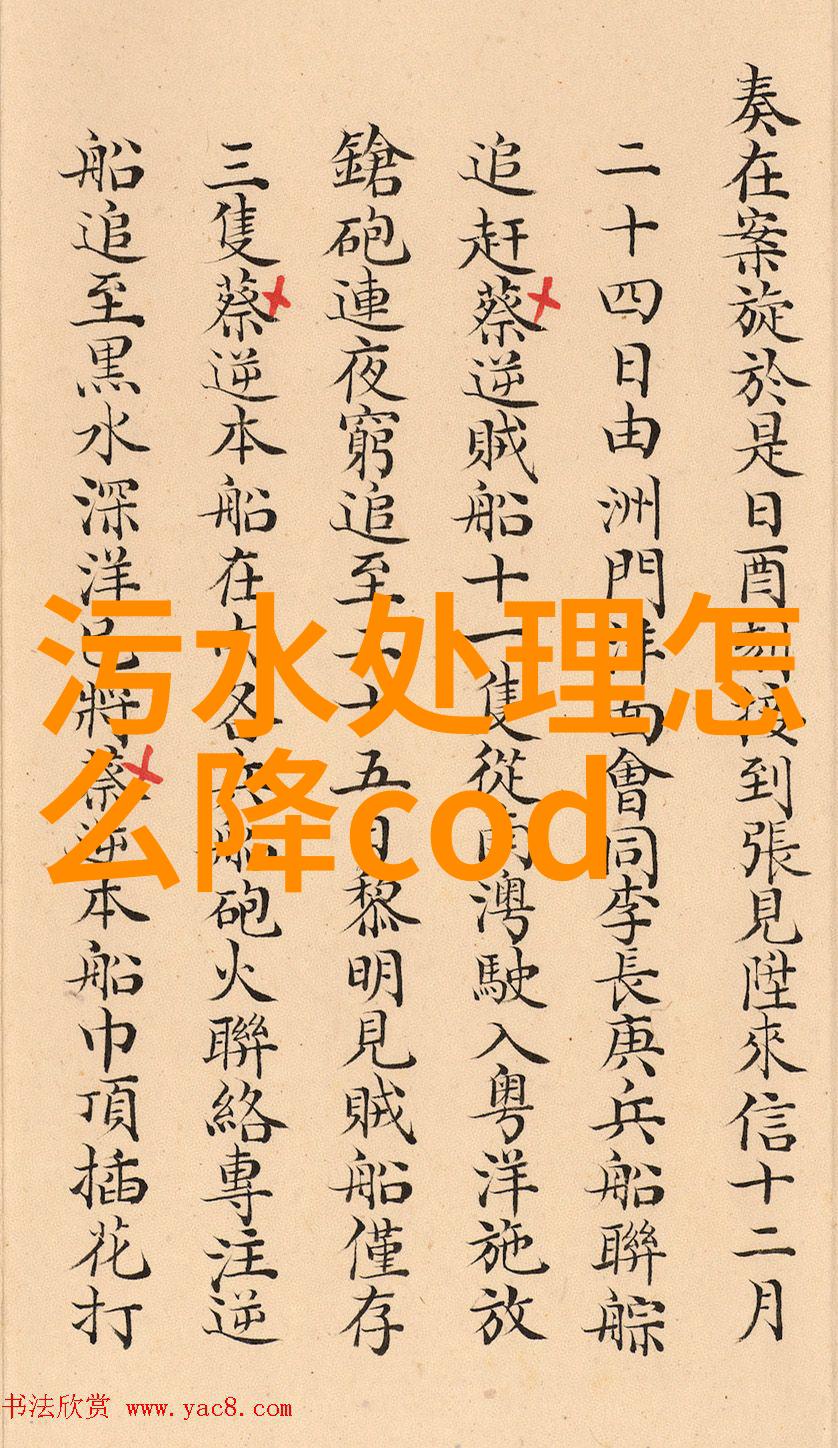 奏在案旋於是日酉刻接到張見陞來信十二月
二十四日由洲門洋面會同李長庚兵船聯䑸
追赶蔡逆賊船十一隻從南澚駛入粤洋施放
鎗砲連夜窮追至二十五日黎明見賊船僅存
三隻蔡逆本船在內各兵船砲火聯絡專注逆
船追至黒水深洋已將蔡逆本船巾頂插花打
污水处理怎
么降cod
书法欣赏 www.yac8.com